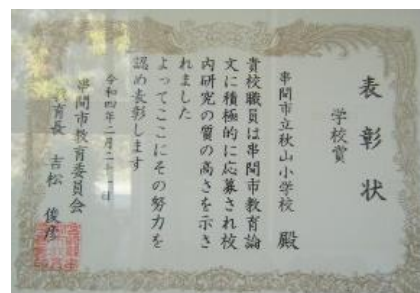 表彰状
学校賞
串間市立秋山小学校 殿
貴校職員は串間市教育論
文に積極的に応募され校
内研究の質の高さを示さ
れました
よってここにその努力を
認め表彰します
令和四年二月二十一日
串間市教育委員会
教育長 吉松 俊彦